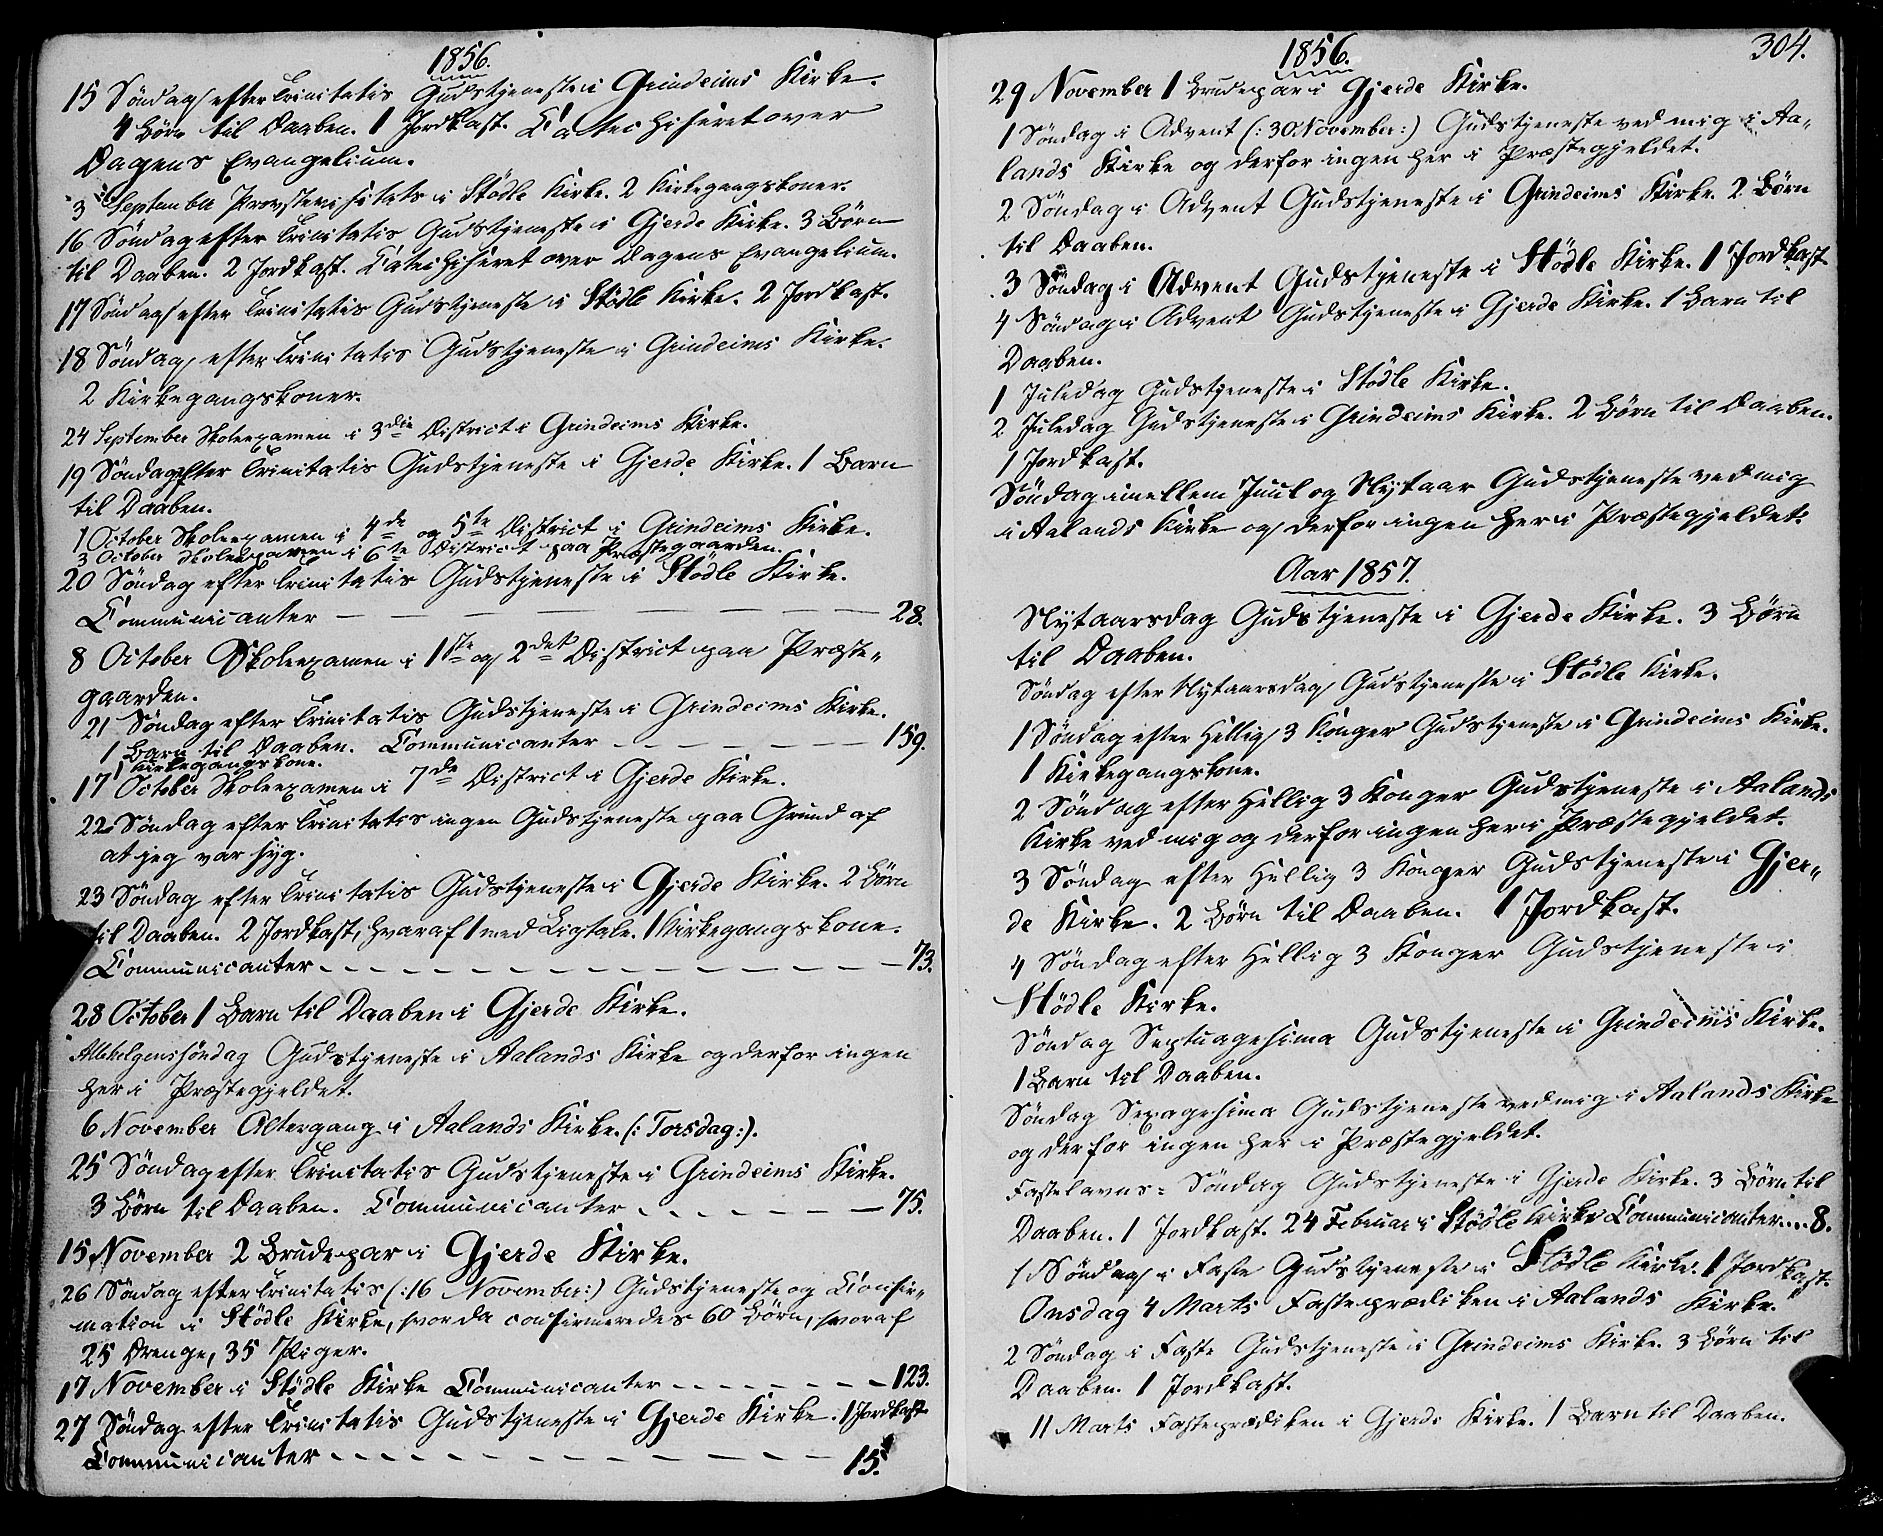 1856.
15 Søndag efter Trinitatis Gudstjeneste i Grindeims Kirke.
4 Børn til Daaben. 1 Jordkast. Catechiseret over
Dagens Evangelium.
3 September Provstevisitats i Stødle Kirke. 2 Kirkegangskoner.
16 Søndag efter Trinitatis Gudstjeneste i Gjerde Kirke. 3 Børn
til Daaben. 2 Jordkast. Catechiseret over Dagens Evangelium.
17 Søndag efter Trinitatis Gudstjeneste i Stødle Kirke. 2 Jordkast.
18 Søndag efter Trinitatis Gudstjeneste i Grindeims Kirke.
2 Kirkegangskoner.
24 September Skoleexamen i 3die District i Grindeims Kirke.
19 Søndag efter Trinitatis Gudstjeneste i Gjerde Kirke. 1 Barn
til Daaben.
1 October Skoleexamen i 4de og 5te District i Grindeims Kirke.
3 October Skoleexamen i 6te District paa Præstegaarden.
20 Søndag efter Trinitatis Gudstjeneste i Stødle Kirke.
Communicanter — — — — — — 28.
8 October Skoleexamen i 1ste og 2det District paa Præste„
gaarden.
21 Søndag efter Trinitatis Gudstjeneste i Grindeims Kirke.
1 Barn til Daaben. Communicanter - - - - - - 159.
1 Kirkegangskone.
17 October Skoleexamen i 7de District i Gjerde Kirke.
22 Søndag efter Trinitatis ingen Gudstjeneste paa Grund af
at jeg var syg.
23 Søndag efter Trinitatis Gudstjeneste i Gjerde Kirke. 2 Børn
til Daaben. 2 Jordkast, hvaraf 1 med Ligtale. 1 Kirkegangskone.
Communicanter - - - - - - - - - - - - - 73.
28 October 1 Barn til Daaben i Gjerde Kirke.
Allehelgenssøndag Gudstjeneste i Aalands Kirke og derfor ingen
her i Præstegjeldet.
6 November Altergang i Aalands Kirke. (: Torsdag :).
25 Søndag efter Trinitatis Gudstjeneste i Grindeims Kirke.
3 Børn til Daaben. Communicanter - - - - - - 75.
15 November 2 Brudepar i Gjerde Kirke.
26 Søndag efter Trinitatis (: 16 November :) Gudstjeneste og Confir„
mation i Stødle Kirke, hvor da confirmeredes 60 Børn, hvoraf
25 Drenge, 35 Piger.
17 November i Stødle Kirke Communicanter - - - - - - 123.
27 Søndag efter Trinitatis Gudstjeneste i Gjerde Kirke. 1 Jordkast
Communicanter - - - - - - - - - - - 15.
1856.
304.
29 November 1 Brudepar i Gjerde Kirke.
1 Søndag i Advent (: 30 November :) Gudstjeneste ved mig i Aa„
lands Kirke og derfor ingen her i Præstegjeldet.
2 Søndag i Advent Gudstjeneste i Grindeims Kirke. 2 Børn
til Daaben.
3 Søndag i Advent Gudstjeneste i Stødle Kirke. 1 Jordkast
4 Søndag i Advent Gudstjeneste i Gjerde Kirke. 1 Barn til
Daaben.
1 Juledag Gudstjeneste i Stødle Kirke.
2 Juledag Gudstjeneste i Grindeims Kirke. 2 Børn til Daaben.
1 Jordkast.
Søndag imellem Juul og Nytaar Gudstjeneste ved mig
i Aalands Kirke og derfor ingen her i Præstegjeldet.
Aar 1857.
Nytaarsdag Gudstjeneste i Gjerde Kirke. 3 Børn
til Daaben.
Søndag efter Nytaarsdag Gudstjeneste i Stødle Kirke.
1 Søndag efter Hellig 3 Konger Gudstjeneste i Grindeims Kirke.
1 Kirkegangskone.
2 Søndag efter Hellig 3 Konger Gudstjeneste i Aalands
Kirke ved mig og derfor ingen her i Præstegjeldet.
3 Søndag efter Hellig 3 Konger Gudstjeneste i Gjer„
de Kirke. 2 Børn til Daaben. 1 Jordkast.
4 Søndag efter Hellig 3 Konger Gudstjeneste i
Stødle Kirke.
Søndag Septuagesima Gudstjeneste i Grindeims Kirke.
1 Barn til Daaben.
Søndag Sexagesima Gudstjeneste ved mig i Aalands Kirke
og derfor ingen her i Præstegjeldet.
Fastelavns= Søndag Gudstjeneste i Gjerde Kirke. 3 Børn til
Daaben. 1 Jordkast. 24 Februar i Stødle Kirke Communicanter.... 8.
1 Søndag i Faste Gudstjeneste i Stødle Kirke. 1 Jordkast.
Onsdag 4 Marts Fasteprædiken i Aalands Kirke.
2 Søndag i Faste Gudstjeneste i Grindeims Kirke. 3 Børn til
Daaben. 1 Jordkast.
11 Marts Fasteprædiken i Gjerde Kirke. 1 Barn til Daaben.